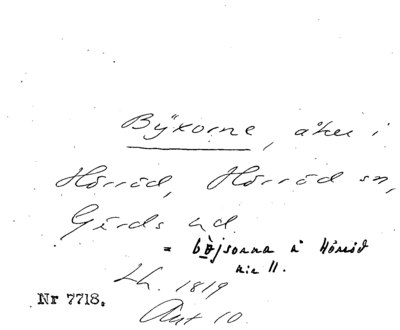 Byxorne, åker i
Hörröd, Hörröd sn,
Gärds hd.
= böjsorna i Hörröd
nr 11.
Lh. 1819
Akt 10.
Nr 7718.